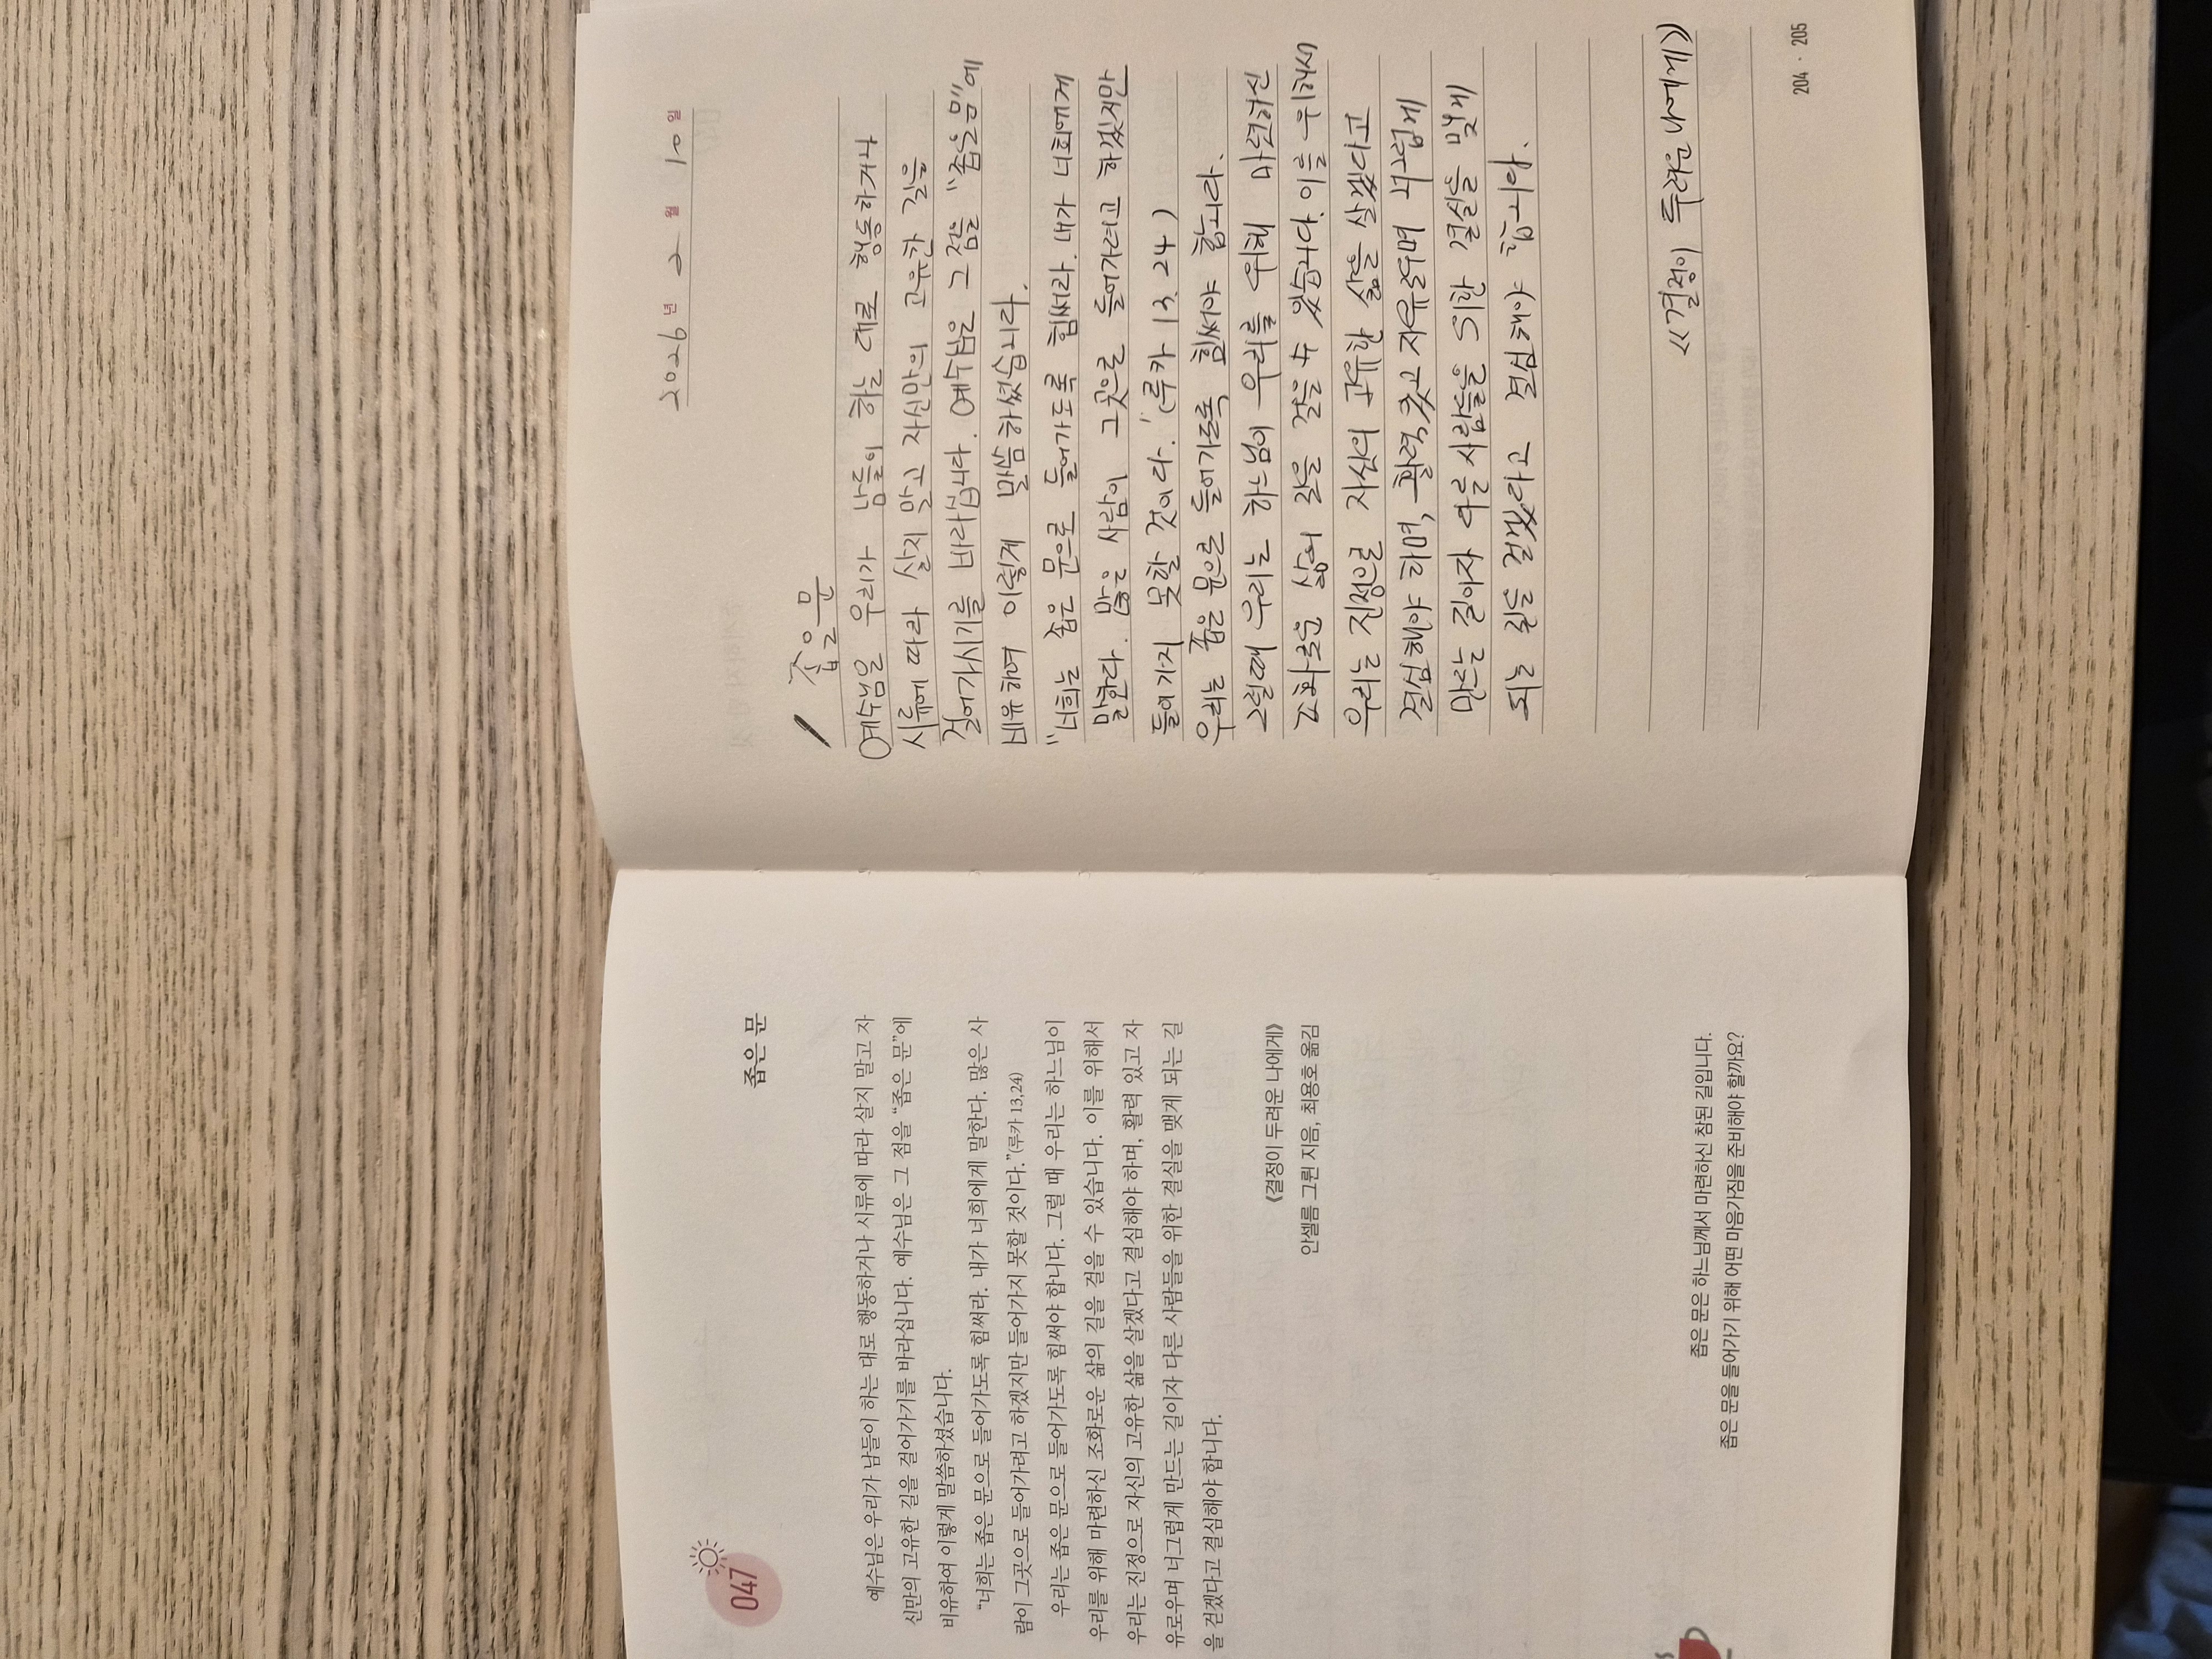 047
좁은 문
예수님은 우리가 남들이 하는 대로 행동하거나 시류에 따라 살지 말고 자
신만의 고유한 길을 걸어가기를 바라십니다. 예수님은 그 점을 “좁은 문”에
비유하여 이렇게 말씀하셨습니다.
“너희는 좁은 문으로 들어가도록 힘써라. 내가 너희에게 말한다. 많은 사
람이 그곳으로 들어가려고 하겠지만 들어가지 못할 것이다.”(루카 13,24)
우리는 좁은 문으로 들어가도록 힘써야 합니다. 그럴 때 우리는 하느님이
우리를 위해 마련하신 조화로운 삶의 길을 걸을 수 있습니다. 이를 위해서
우리는 진정으로 자신의 고유한 삶을 살겠다고 결심해야 하며, 활력 있고 자
유로우며 너그럽게 만드는 길이자 다른 사람들을 위한 결실을 맺게 되는 길
을 걷겠다고 결심해야 합니다.
《결정이 두려운 나에게》
안셀름 그륀 지음, 최용호 옮김
좁은 문은 하느님께서 마련하신 참된 길입니다.
좁은 문을 들어가기 위해 어떤 마음가짐을 준비해야 할까요?
2026년 2월 10일
좁은문
예수님은 우리가 남들이 하는 대로 행동하거나
시류에 따라 살지 말고 자신만의 고유한 길을
걸어가시기를 바라십니다. 예수님은 그 점을 "좁은문"에
비유하여 이렇게 말씀하셨습니다.
"너희는 좁은 문으로 들어가도록 힘써라. 내가 너희에게
말한다. 많은 사람이 그곳으로 들어가려고 하겠지만
들어가지 못할 것이다.'(루카 13. 24)
우리는 좁은 문으로 들어가도록 힘써야 합니다.
그럴때 우리는 하느님이 우리를 위해 마련하신
조화로운 삶의 길을 걸을 수 있습니다. 이를 위해서
우리는 진정으로 자신의 고유한 삶을 살겠다고
결심해야 하며, 활력 있고 자유로우며 너그럽게
만드는 길이자 다른 사람들을 위한 결실을 맺게
되는 길을 걷겠다고 결심해야 합니다.
《결정이 두려운 나에게》
204 · 205